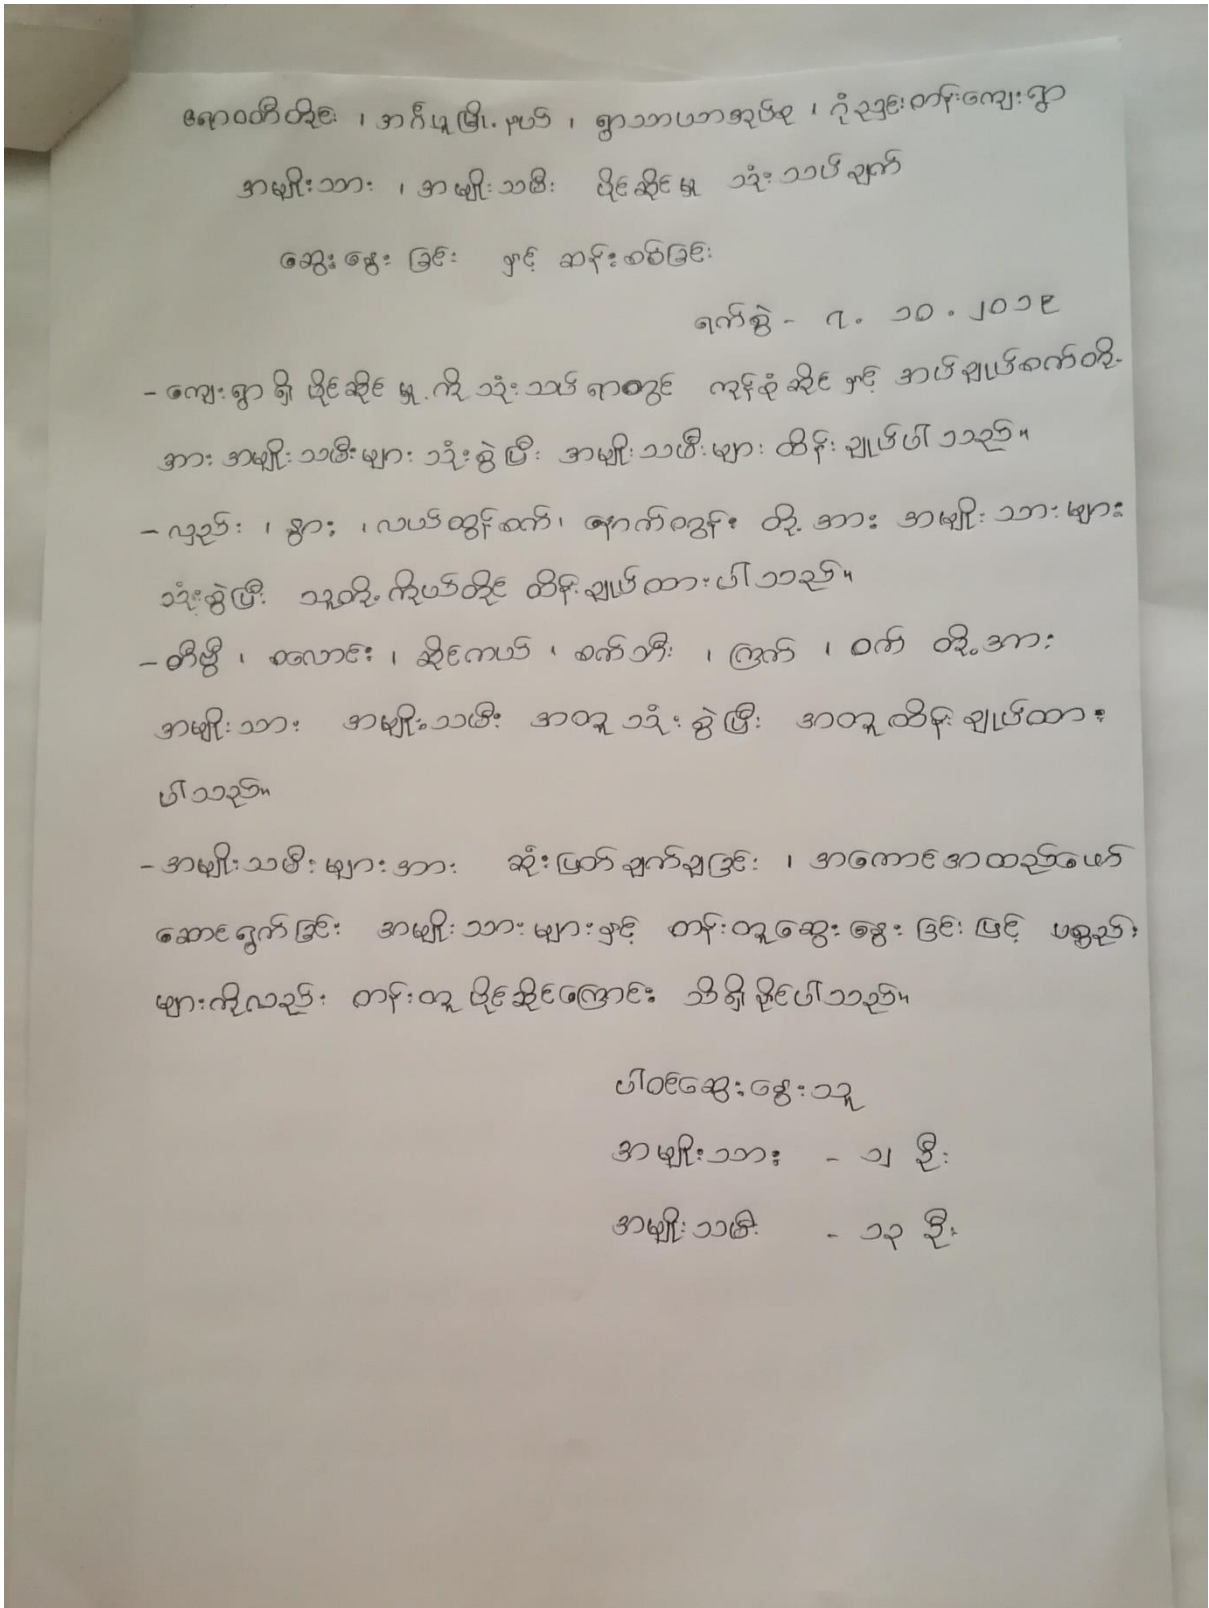 ဧရာဝတီတိုင်း ၊ အင်္ဂပူမြို့နယ် ၊ ရွာသာယာအုပ်စု ၊ ဂုံညှင်းတန်းကျေးရွာ
အမျိုးသား ၊ အမျိုးသမီး ပိုင်ဆိုင်မှု သုံးသပ်ချက်
ဆွေးနွေးခြင်း နှင့် ဆန်းစစ်ခြင်း
ရက်စွဲ - ၇. ၁၀. ၂၀၁၉
- ကျေးရွာရှိ ပိုင်ဆိုင်မှုကို သုံးသပ်ရာတွင် ကုန်စုံဆိုင် နှင့် အပ်ချုပ်စက်တို့
အား အမျိုးသမီးများ သုံးစွဲပြီး အမျိုးသမီးများ ထိန်းချုပ်ပါသည်။
- လှည်း ၊ နွား ၊ လယ်ထွန်စက်၊ နောက်တွန်း တို့အား အမျိုးသားများ
သုံးစွဲပြီး သူတို့ကိုယ်တိုင် ထိန်းချုပ်ထားပါသည်။
- တီဗွီ ၊ စလောင်း ၊ ဆိုင်ကယ် ၊ စက်ဘီး ၊ ကြက် ၊ ဝက် တို့အား
အမျိုးသား အမျိုးသမီး အတူသုံးစွဲပြီး အတူထိန်းချုပ်ထား
ပါသည်။
- အမျိုးသမီးများအား ဆုံးဖြတ်ချက်ချခြင်း ၊ အကောင်အထည်ဖော်
ဆောင်ရွက်ခြင်း အမျိုးသားများနှင့် တန်းတူဆွေးနွေးခြင်းဖြင့် ပစ္စည်း
များကိုလည်း တန်းတူ ပိုင်ဆိုင်ကြောင်း သိရှိနိုင်ပါသည်။
ပါဝင်ဆွေးနွေးသူ
အမျိုးသား - ၁၂ ဦး
အမျိုးသမီး - ၁၃ ဦး